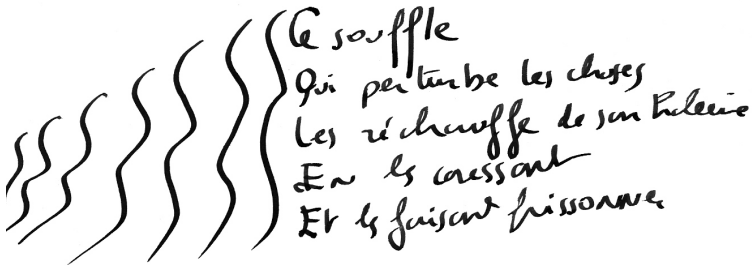 Ce souffle
Qui perturbe les choses
Les réchauffe de son haleine
En les caressant
Et les faisant frissonner